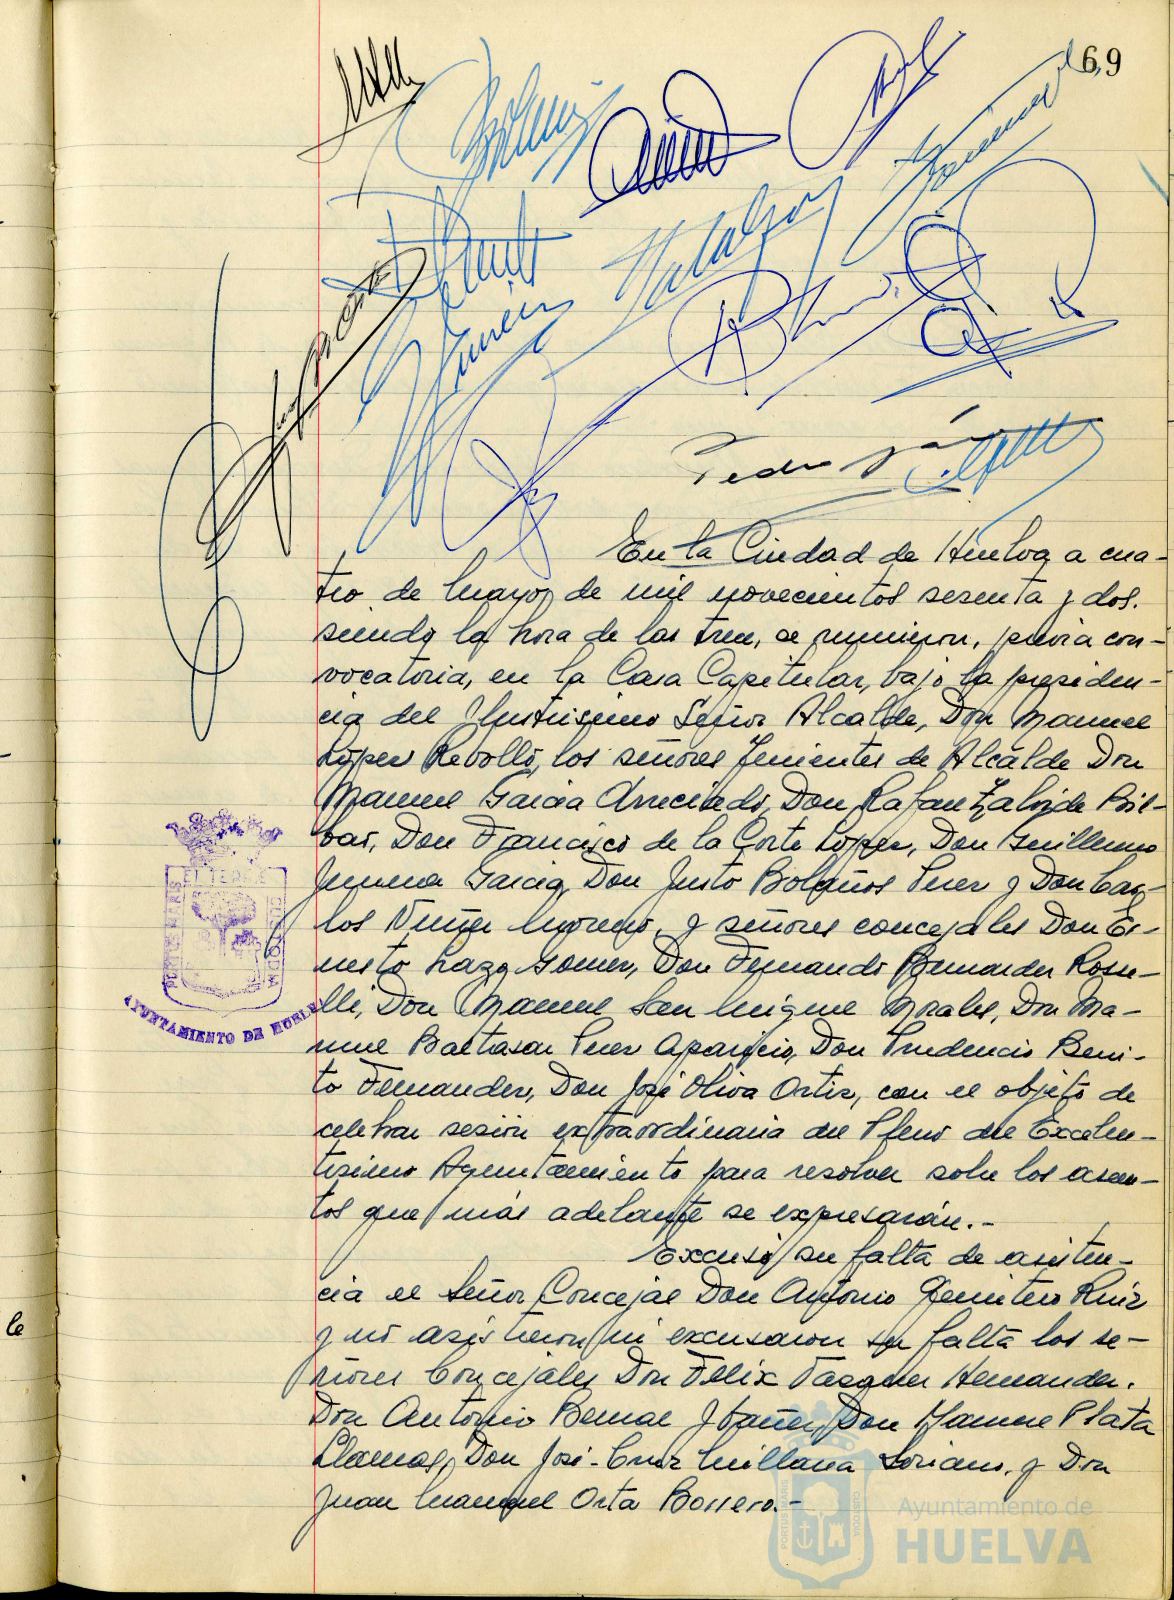 69
Pedro
En la Ciudad de Huelva a cua-
tro de Mayo de mil novecientos sesenta y dos.
siendo la hora de las trece, se reunieron, previa con-
vocatoria, en la Casa Capitular, bajo la presiden-
cia del Ilustrisimo Señor Alcalde, Don Manuel
López Rebollo, los señores Tenientes de Alcalde Don
Manuel Garcia Don Rafael Bil-
bao, Don Francisco de la Corte Lopez, Don Guillermo
Jimenez Garcia, Don Justo Bolaños Perez y Don Car-
los Nuñez Moreno, y señores concejales Don Er-
nesto Lazo Gomez, Don Fernando Bermudez Rosse-
lli, Don Manuel San Miguel Morales, Don Ma-
nuel Baltasar Perez Aparicio, Don Prudencio Beni-
to Fernandez, Don José Oliva Ortiz, con el objeto de
celebrar sesión extraordinaria del Pleno del Excelen-
tisimo Ayuntamiento para resolver sobre los asun-
tos que más adelante se expresarán.-
Excusó su falta de asisten-
cia el Señor Concejal Don Antonio Quintero Ruiz
y no asistieron ni excusaron su falta los se-
ñores Concejales Don Félix Vazquez Hernandez.
Don Antonio Bernal Ibañez, Don Manuel Plata
Llamas, Don José-Cruz Millana Soriano, y Don
Juan Manuel Orta Borrero.-
PORTUS MARIS
ET TERRE
CUSTODIA
AYUNTAMIENTO DE HUELVA
le
PORTUS MARIS
CUSTODIA
Ayuntamiento de
HUELVA